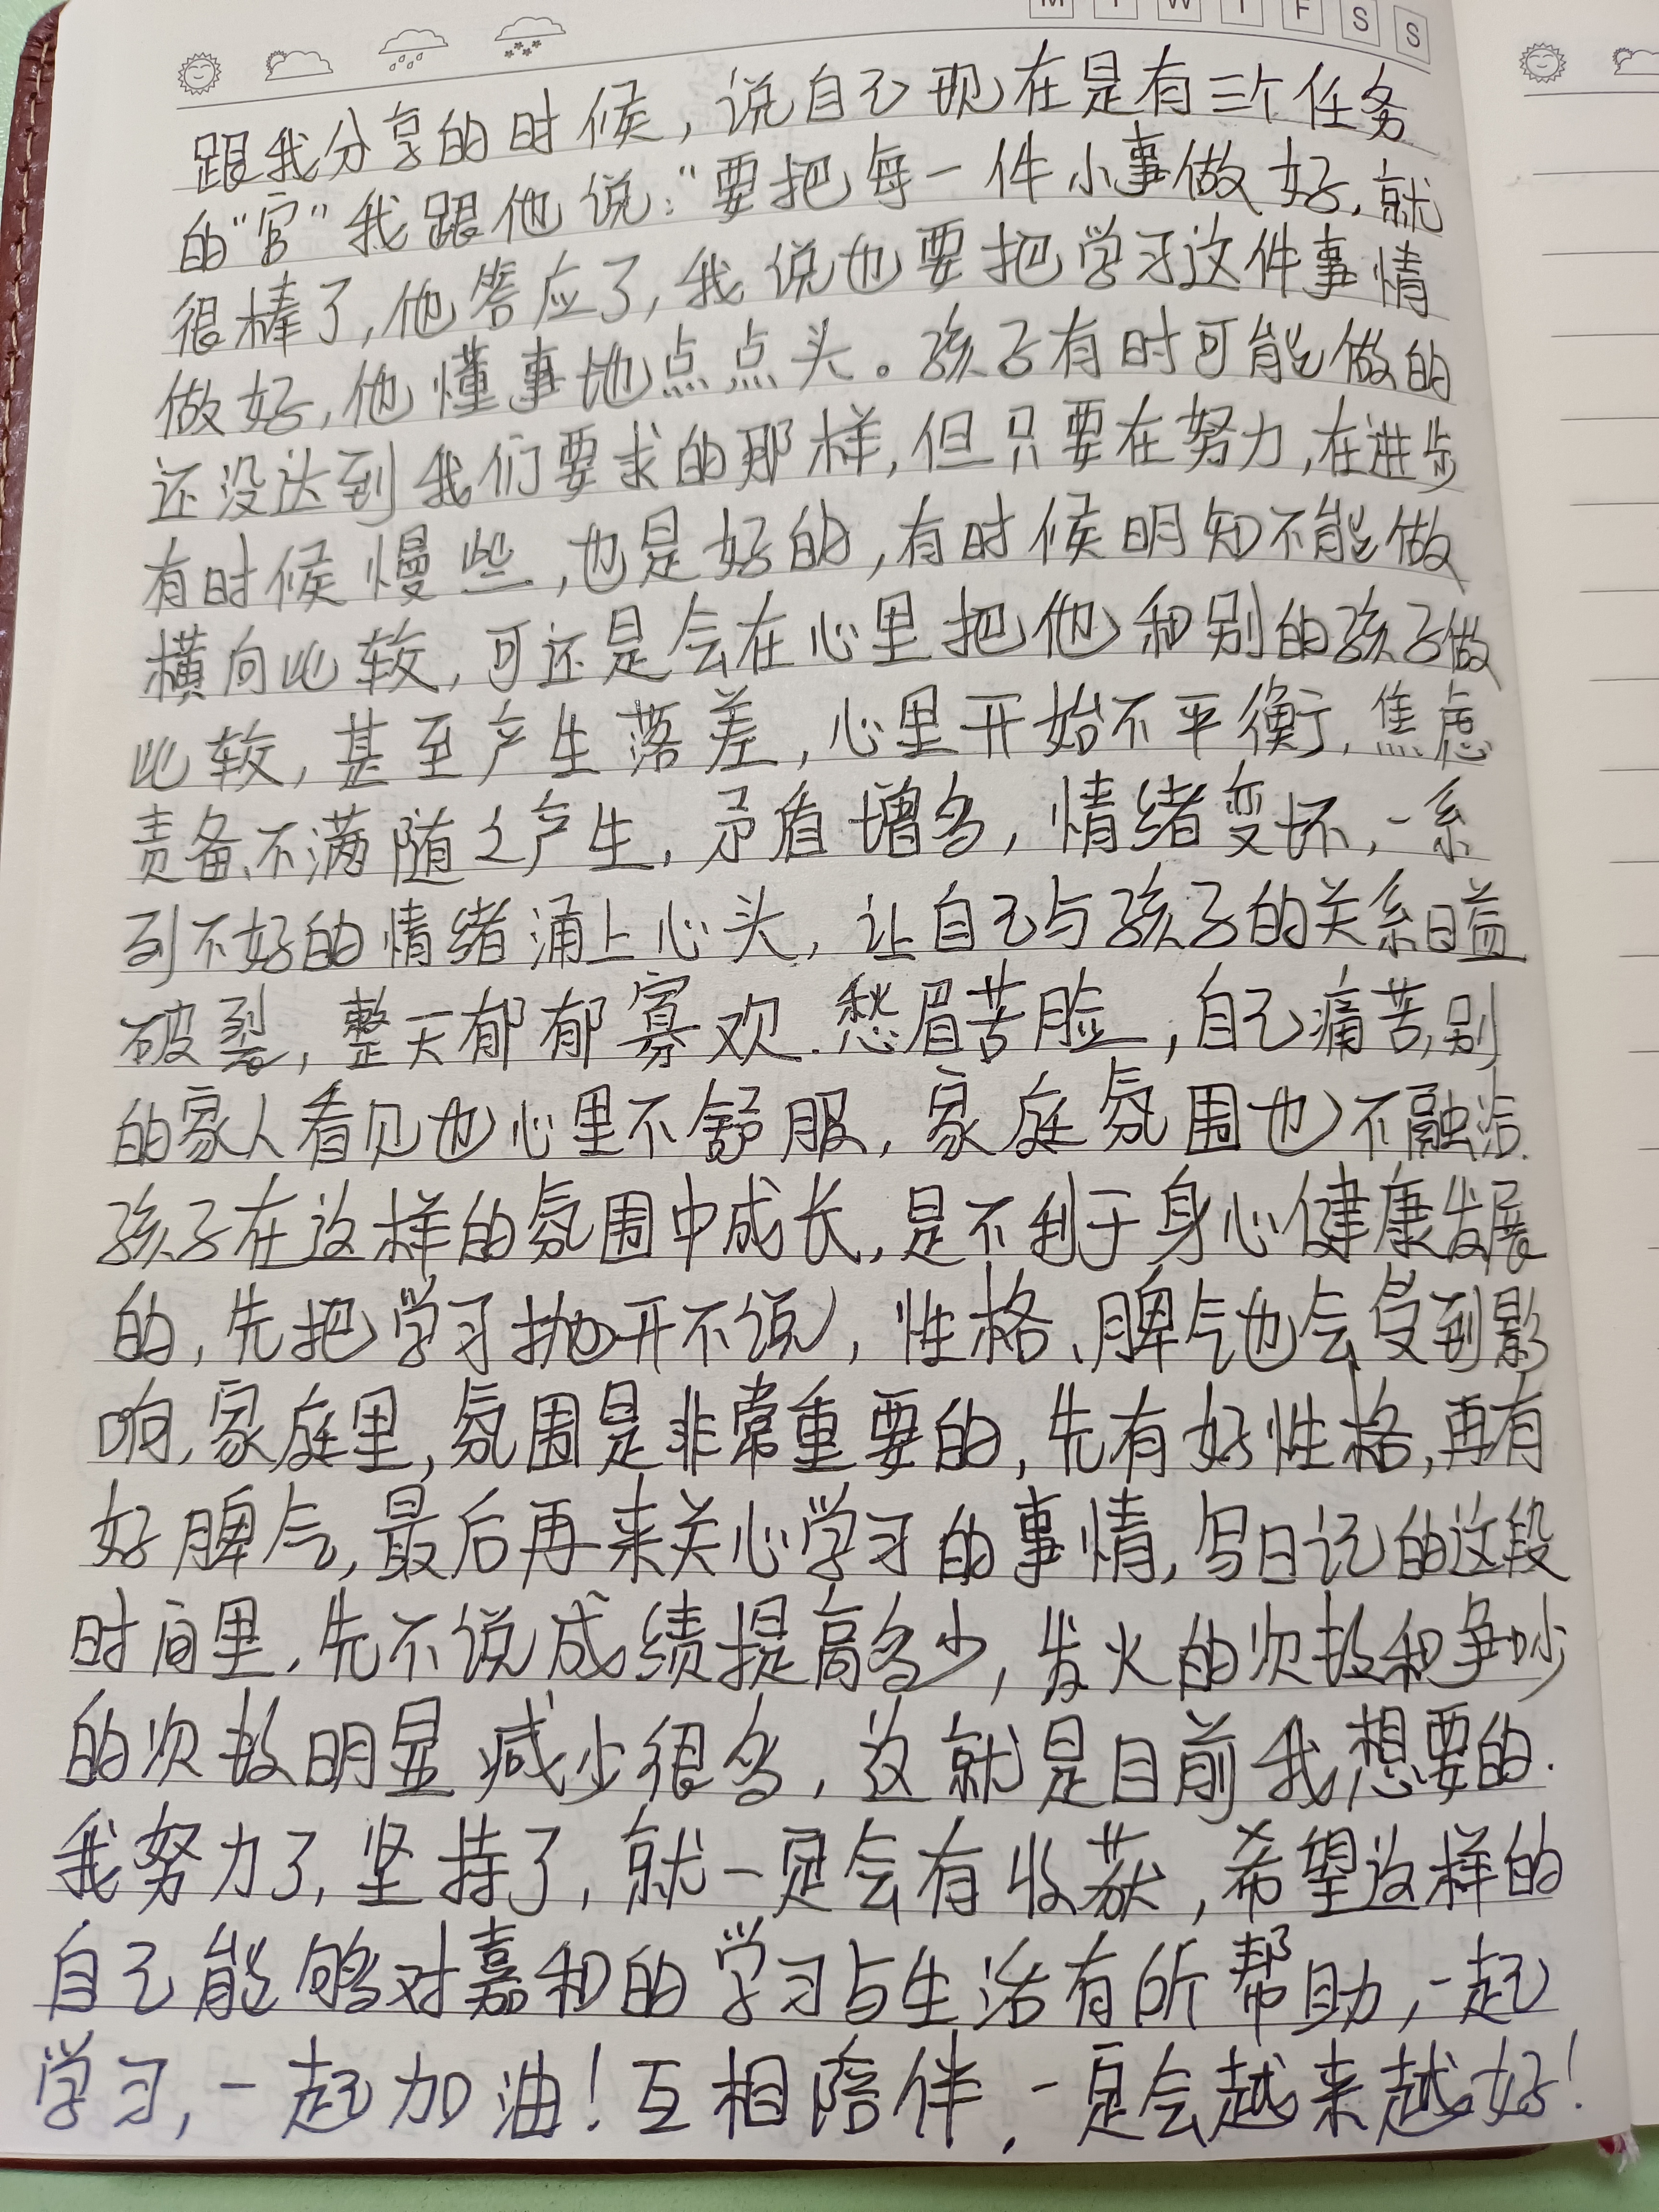 M T W T F S S
跟我分享的时候，说自己现在是有三个任务
的“官”我跟他说：“要把每一件小事做好，就
很棒了，他答应了，我说也要把学习这件事情
做好，他懂事地点点头。孩子有时可能做的
还没达到我们要求的那样，但只要在努力，在进步
有时候慢些，也是好的，有时候明知不能做
横向比较，可还是会在心里把他和别的孩子做
比较，甚至产生落差，心里开始不平衡，焦虑
责备、不满随之产生，矛盾增多，情绪变坏，一系
列不好的情绪涌上心头，让自己与孩子的关系日益
破裂，整天郁郁寡欢、愁眉苦脸，自己痛苦，别
的家人看见也心里不舒服，家庭氛围也不融洽.
孩子在这样的氛围中成长，是不利于身心健康发展
的，先把学习抛开不说，性格、脾气也会受到影
响，家庭里，氛围是非常重要的，先有好性格，再有
好脾气，最后再来关心学习的事情，写日记的这段
时间里，先不说成绩提高多少，发火的次数和争吵
的次数明显减少很多，这就是目前我想要的.
我努力了，坚持了，就一定会有收获，希望这样的
自己能够对嘉和的学习与生活有所帮助，一起
学习，一起加油！互相陪伴，一定会越来越好！